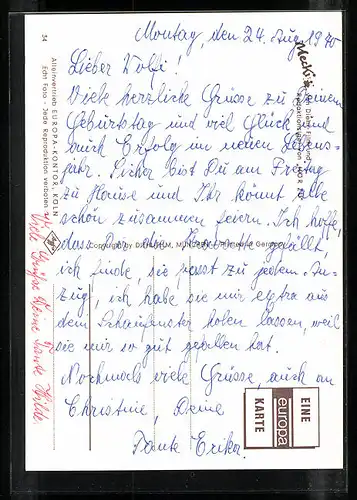 Montag, den 24. Aug. 1970
Lieber Wolfi!
Viele herzliche Grüsse zu Deinem
Geburtstag und viel Glück und
auch Erfolg im neuen Lebens-
jahr. Sicher bist Du am Freitag
zu Hause und Ihr könnt alle
schön zusammen feiern. Ich hoffe,
dass Dir die Krawatte gefällt,
ich finde, sie passt zu jedem An-
zug, ich habe sie mir extra aus
dem Schaufenster holen lassen, weil
sie mir so gut gefallen hat.
Nochmals viele Grüsse, auch an
Christine, Deine
Tante Erika.
Viele Grüße Deine Tante Hilde
54
Alleinvertrieb EUROPA-KONTOR, KÖLN
Echt Foto - Jede Reproduktion verboten
Mecki
Copyright by DIEHL-FILM, MÜNCHEN
EINE
europa
KARTE